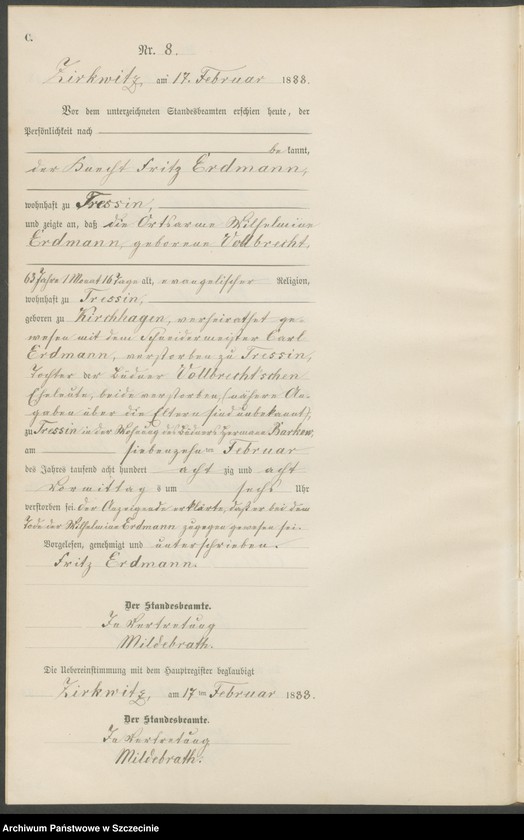 C.
Nr. 8.
Zirkwitz, am 17. Februar 1888.
Vor dem unterzeichneten Standesbeamten erschien heute, der
Persönlichkeit nach
be kannt,
der Knecht Fritz Erdmann,
wohnhaft zu Tressin,
und zeigte an, daß die Ortsarme Wilhelmine
Erdmann, geborene Vollbrecht,
63 Jahre 1 Monat 16 Tage alt, evangelischer Religion,
wohnhaft zu Tressin,
geboren zu Kirchhagen, verheirathet ge-
wesen mit dem Schneidermeister Carl
Erdmann, verstorben zu Tressin,
Tochter der Büdner Vollbrecht'schen
Eheleute, beide verstorben, (nähere An-
gaben über die Eltern sind unbekannt),
zu Tressin in der Wohnung des Büdners Hermann Barkow,
am siebenzehn ten Februar
des Jahres tausend acht hundert acht zig und acht
Vormittag s um sechs Uhr
verstorben sei. Der Anzeigende erklärte, daß er bei dem
Tode der Wilhelmine Erdmann zugegen gewesen sei.
Vorgelesen, genehmigt und unterschrieben.
Fritz Erdmann.
Der Standesbeamte.
In Vertretung
Mildebrath.
Die Uebereinstimmung mit dem Hauptregister beglaubigt
Zirkwitz, am 17ten Februar 1888.
Der Standesbeamte.
In Vertretung
Mildebrath.
Archiwum Państwowe w Szczecinie